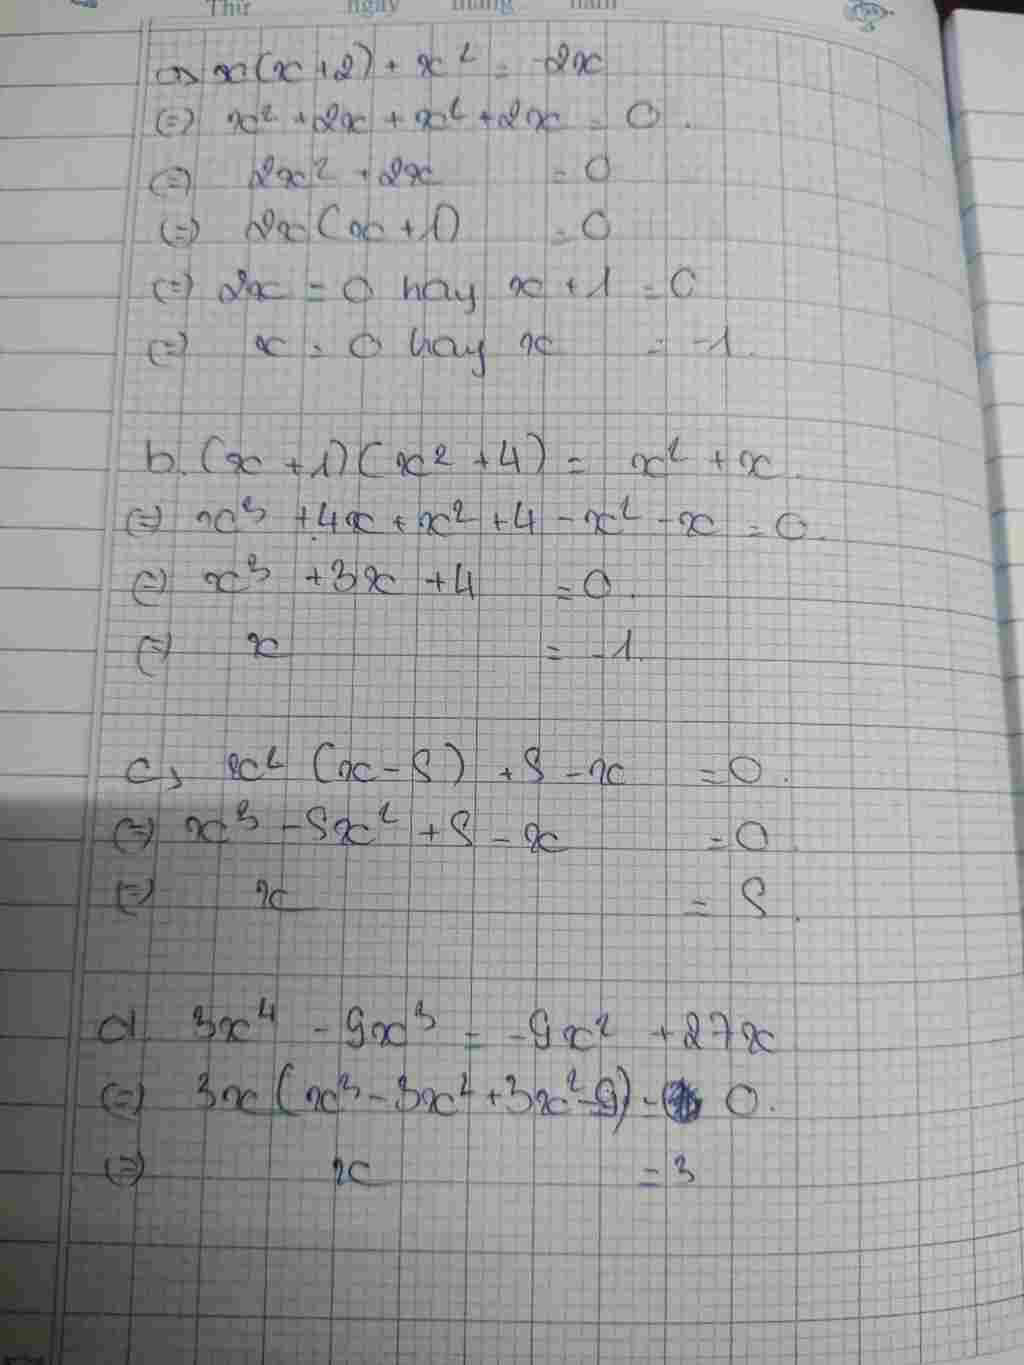 Thứ ngày tháng năm
a, x(x+2) + x² = -2x
(=) x² + 2x + x² + 2x = 0.
(=) 2x² + 2x = 0
(=) 2x(x+1) = 0
(=) 2x = 0 hay x + 1 = 0
(=) x = 0 hay x = -1.
b. (x + 1)(x² + 4) = x² + x.
(=) x³ + 4x + x² + 4 - x² - x = 0.
(=) x³ + 3x + 4 = 0.
(=) x = -1.
c, x² (x - 9) + 9 - x = 0.
(=) x³ - 9x² + 9 - x = 0.
(=) x = 9.
d. 3x⁴ - 9x³ = -9x² + 27x
(=) 3x(x³ - 3x² + 3x² - 9) = 0.
(=) x = 3